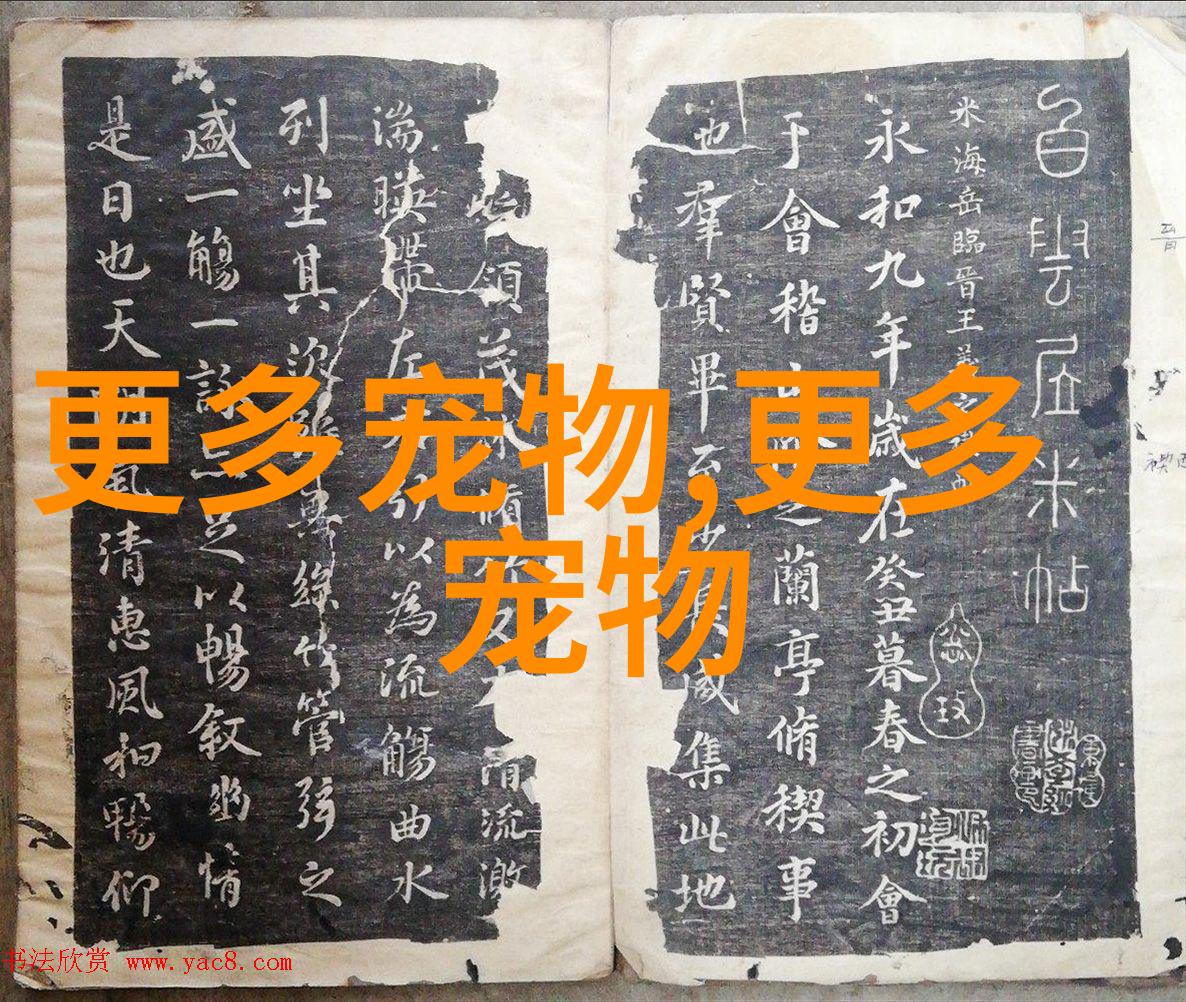 自雲居米帖
米海岳臨晉王羲之
永和九年歲在癸丑暮春之初會
于會稽之蘭亭脩稧事
也羣賢畢至少長咸集此地
領茂林脩竹又清流激
湍暎帶左右引以為流觴曲水
列坐其次雖無絲竹管弦之
盛一觴一詠亦足以暢叙幽情
是日也天朗氣清惠風和暢仰
更多宠物,更多
宠物
书法欣赏 www.yac8.com